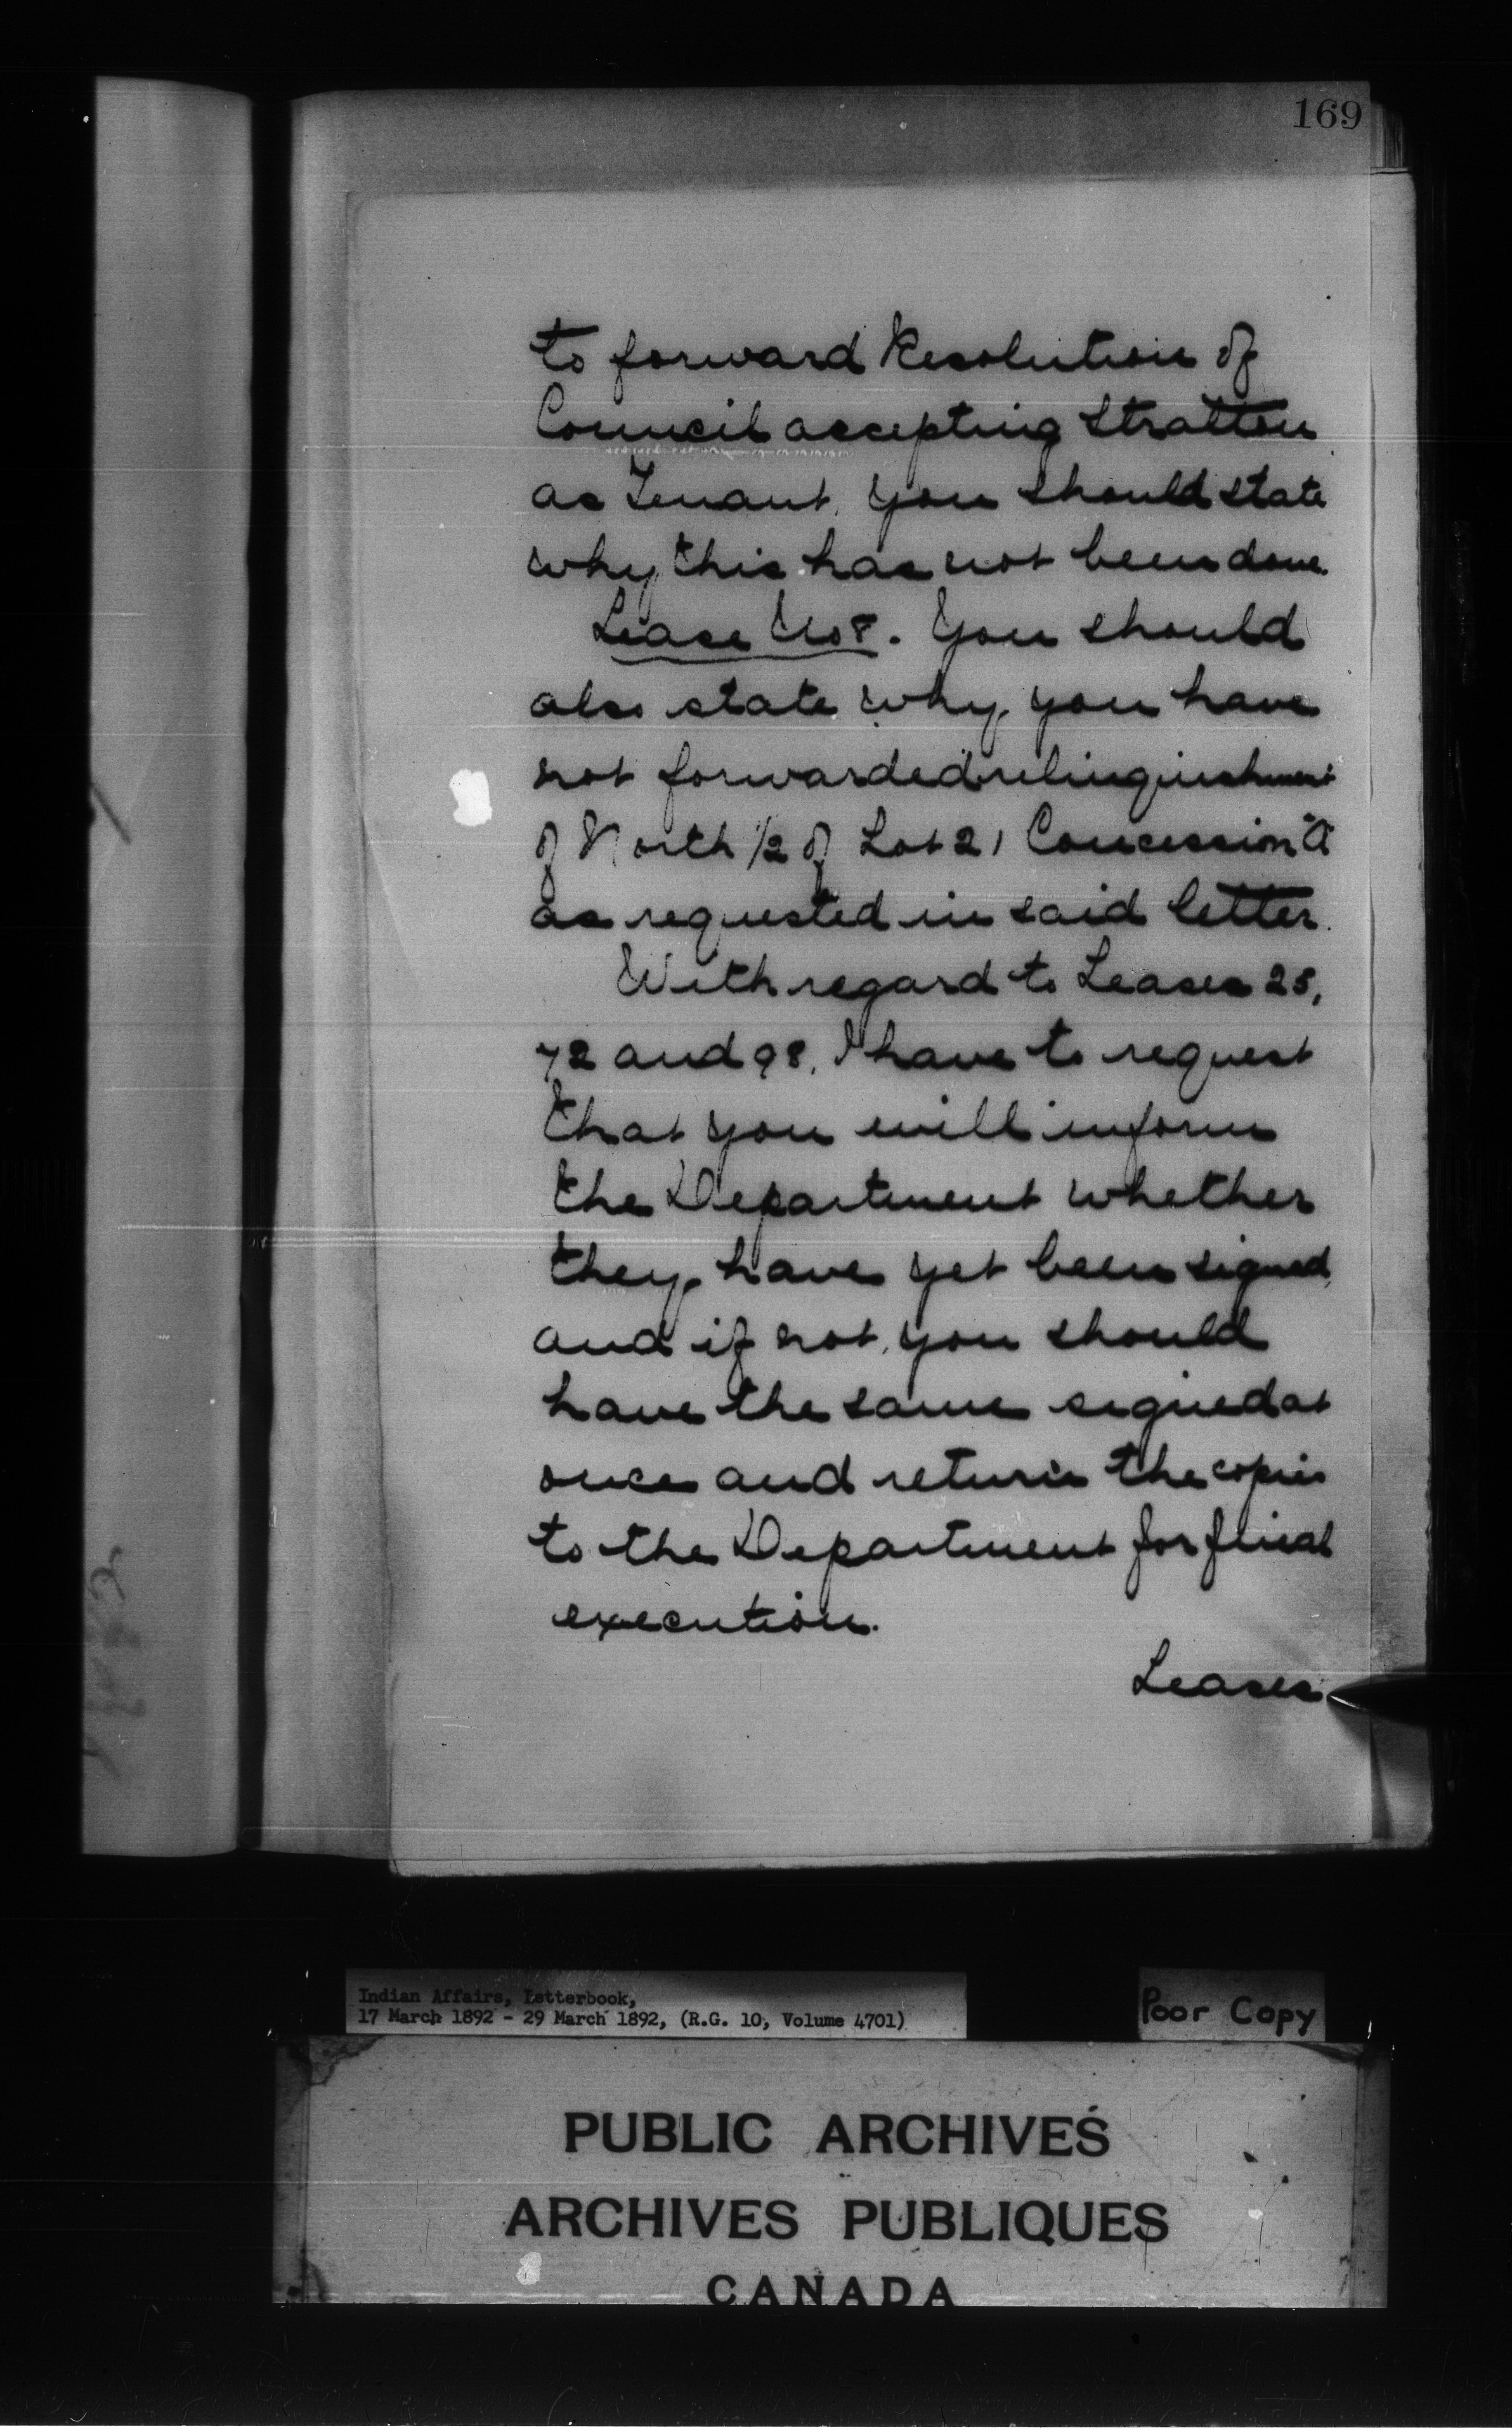 169
to forward Resolution of
Council accepting Stratton
as Tenant, you should state
why this has not been done.
Lease No 8. You should
also state why you have
not forwarded relinquishment
of North 1/2 of Lot 21 Concession "A"
as requested in said letter.
With regard to Leases 25,
72 and 98, I have to request
that you will inform
the Department whether
they have yet been signed,
and if not, you should
have the same signed at
once and return the copies
to the Department for final
execution.
Leases
Indian Affairs, Letterbook,
17 March 1892 - 29 March 1892, (R.G. 10, Volume 4701)
Poor Copy
PUBLIC ARCHIVES
ARCHIVES PUBLIQUES
CANADA